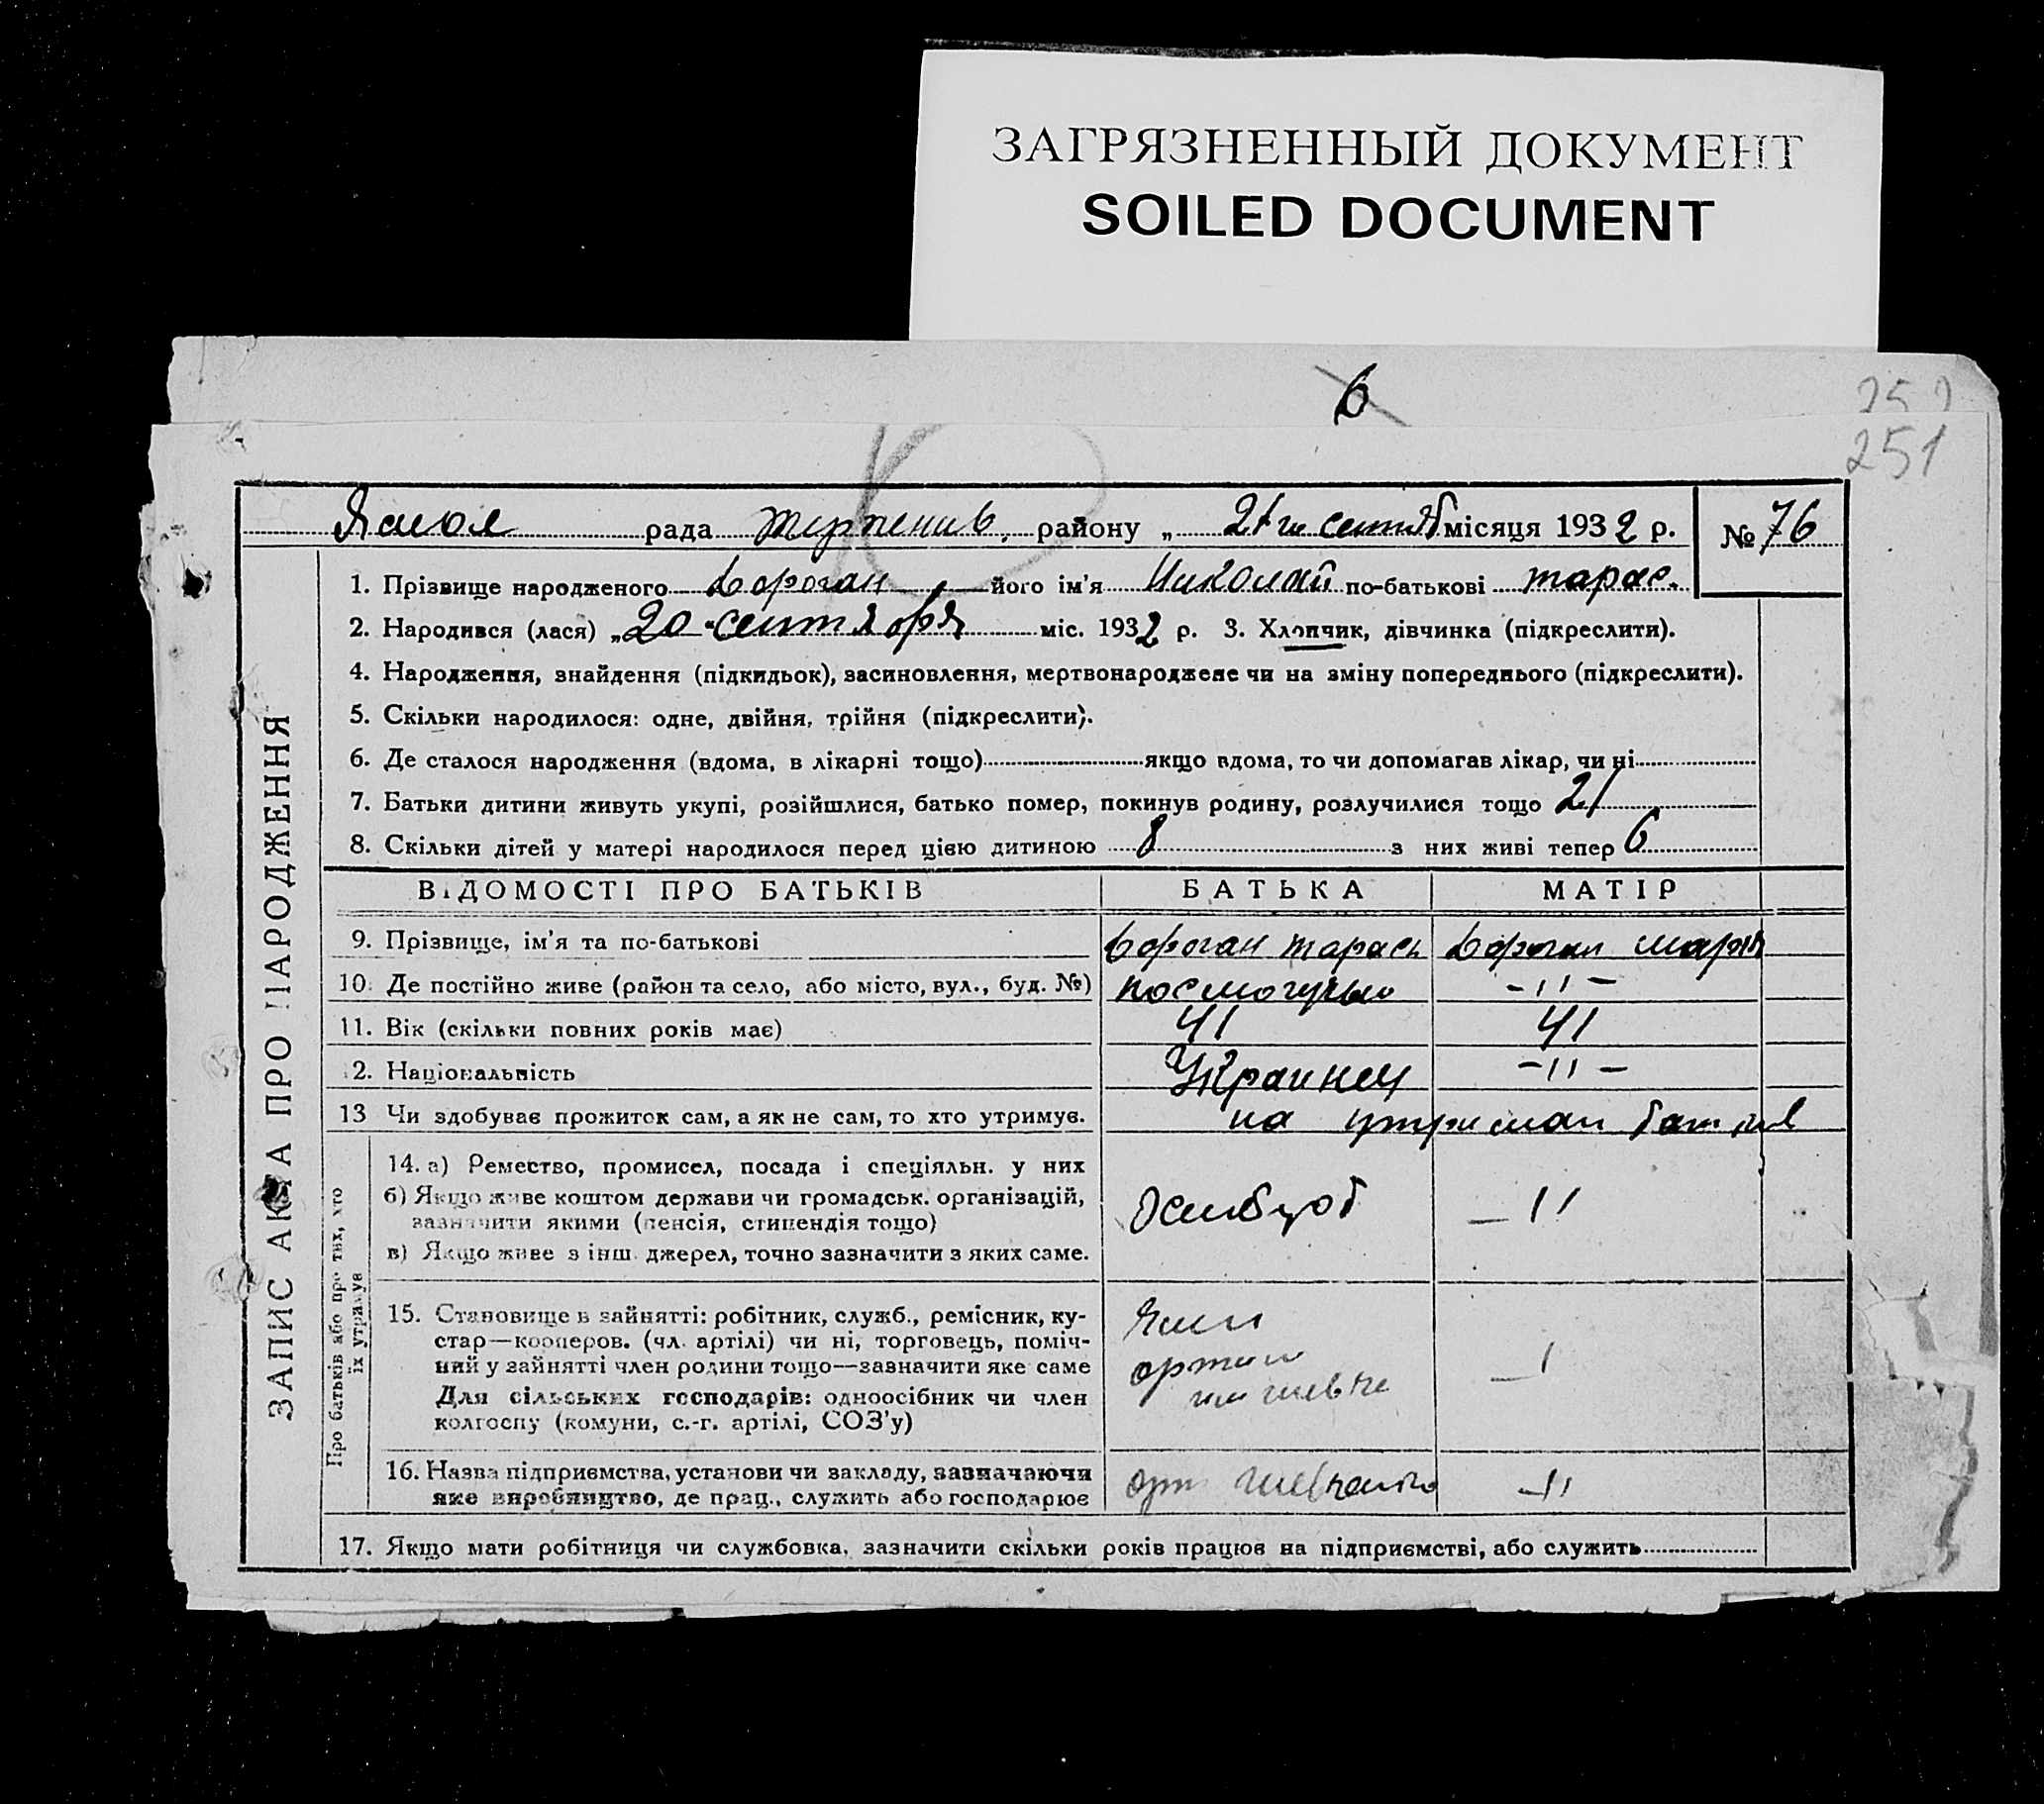 ЗАГРЯЗНЕННЫЙ ДОКУМЕНТ
SOILED DOCUMENT
6
252
251
рада района „ 21го сентяб місяця 1932 р. № 76
ЗАПИС АКТА ПРО НАРОДЖЕННЯ
1. Прізвище народженого його ім'я Николай по-батькові тарас.
2. Народився (лася) „20“ сентября міс. 1932 р. 3. Хлопчик, дівчинка (підкреслити).
4. Народження, знайдення (підкидьок), засиновлення, мертвонароджене чи на зміну попереднього (підкреслити).
5. Скільки народилося: одне, двійня, трійня (підкреслити).
6. Де сталося народження (вдома, в лікарні тощо) якщо вдома, то чи допомагав лікар, чи ні
7. Батьки дитини живуть укупі, розійшлися, батько помер, покинув родину, розлучилися тощо 21
8. Скільки дітей у матері народилося перед цією дитиною 8 з них живі тепер 6
ВІДОМОСТІ ПРО БАТЬКІВ БАТЬКА МАТІР
9. Прізвище, ім'я та по-батькові тарась мария
10. Де постійно живе (район та село, або місто, вул., буд. №) - 11 -
11. Вік (скільки повних років має) 41 41
12. Національність Украинец - 11 -
13 Чи здобуває прожиток сам, а як не сам, то хто утримує. на утриман батьків
Про батьків або про тих, хто їх утримує
14. а) Ремество, промисел, посада і спеціяльн. у них
б) Якщо живе коштом держави чи громадськ. організацій,
зазначити якими (пенсія, стипендія тощо) — 11
в) Якщо живе з інш. джерел, точно зазначити з яких саме.
15. Становище в зайнятті: робітник, служб., ремісник, ку-
стар—кооперов. (чл. артілі) чи ні, торговець, поміч-
ний у зайнятті член родини тощо—зазначити яке саме
Для сільських господарів: одноосібник чи член
колгоспу (комуни, с.-г. артілі, СОЗ'у)
16. Назва підприємства, установи чи закладу, зазначаючи
яке виробництво, де прац., служить або господарює арт -11
17. Якщо мати робітниця чи службовка, зазначити скільки років працює на підприємстві, або служить